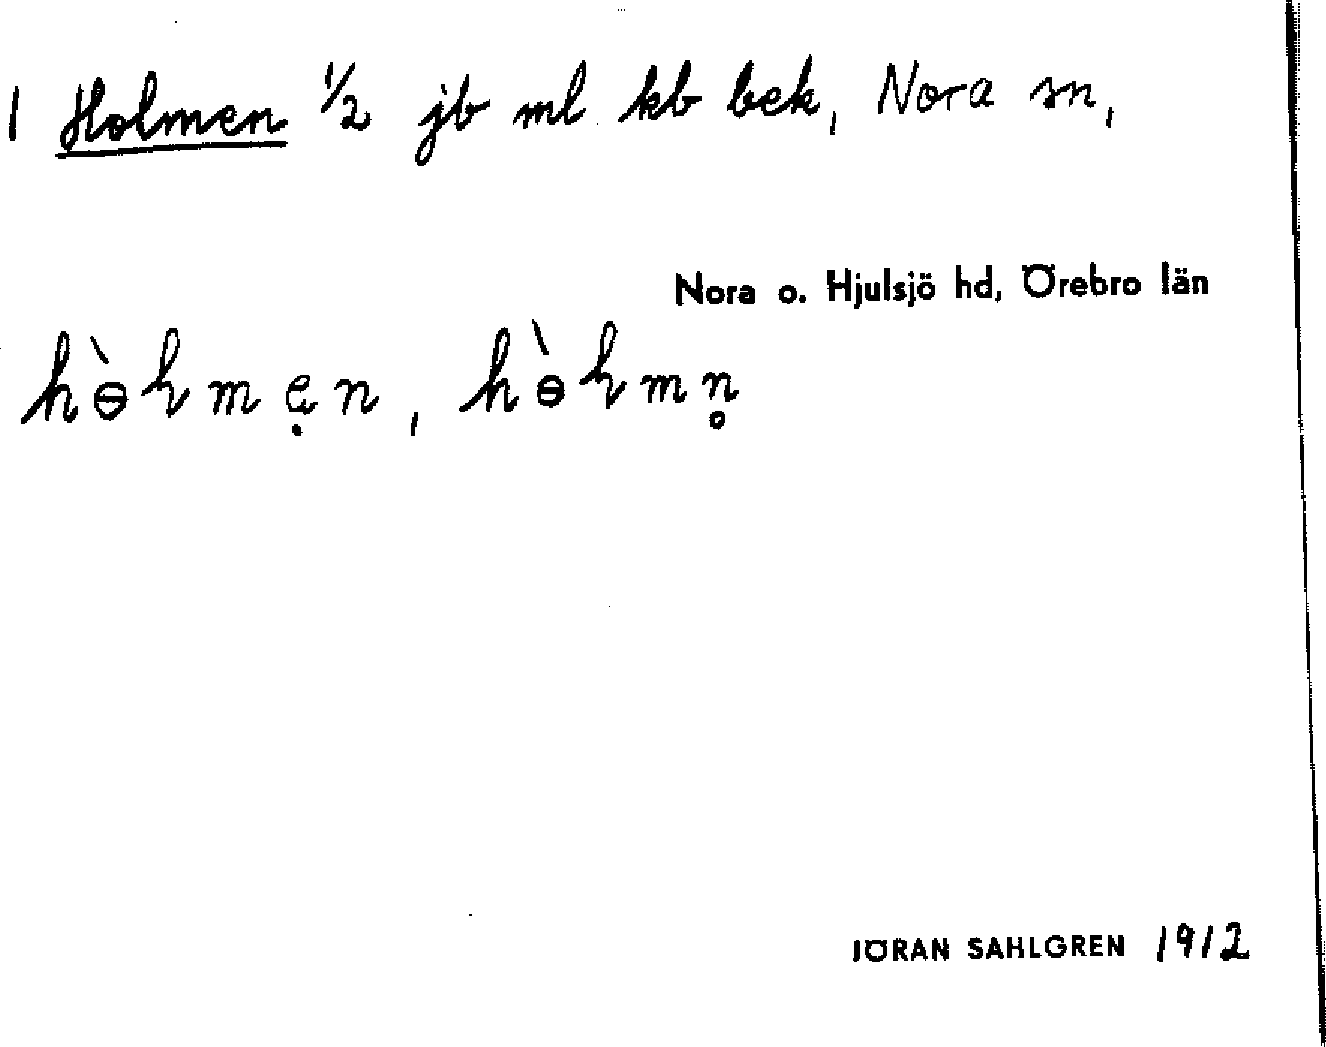 1 Holmen 1/2 jb ml kb bek, Nora sn,
Nora o. Hjulsjö hd, Örebro län
hɵ̀ɫmẹn, hɵ̀ɫmn̥
JÖRAN SAHLGREN 1912